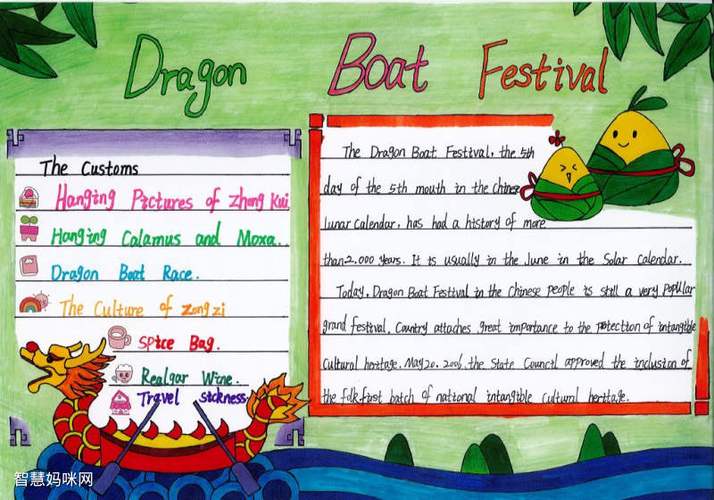 Dragon Boat Festival
The Customs
Hanging Pictures of Zhong Kui
Hanging Calamus and Moxa.
Dragon Boat Race.
The Culture of Zongzi
Spice Bag.
Realgar Wine.
Travel sickness
The Dragon Boat Festival, the 5th
day of the 5th mouth in the Chinese
lunar calendar, has had a history of more
than 2,000 years. It is usually in the June in the Solar Calendar.
Today, Dragon Boat Festival in the Chinese people is still a very popular
grand festival. Country attaches great importance to the protection of intangible
cultural heritage. May 20, 2006, the State Council approved the inclusion of
the folk first batch of national intangible cultural heritage.
智慧妈咪网